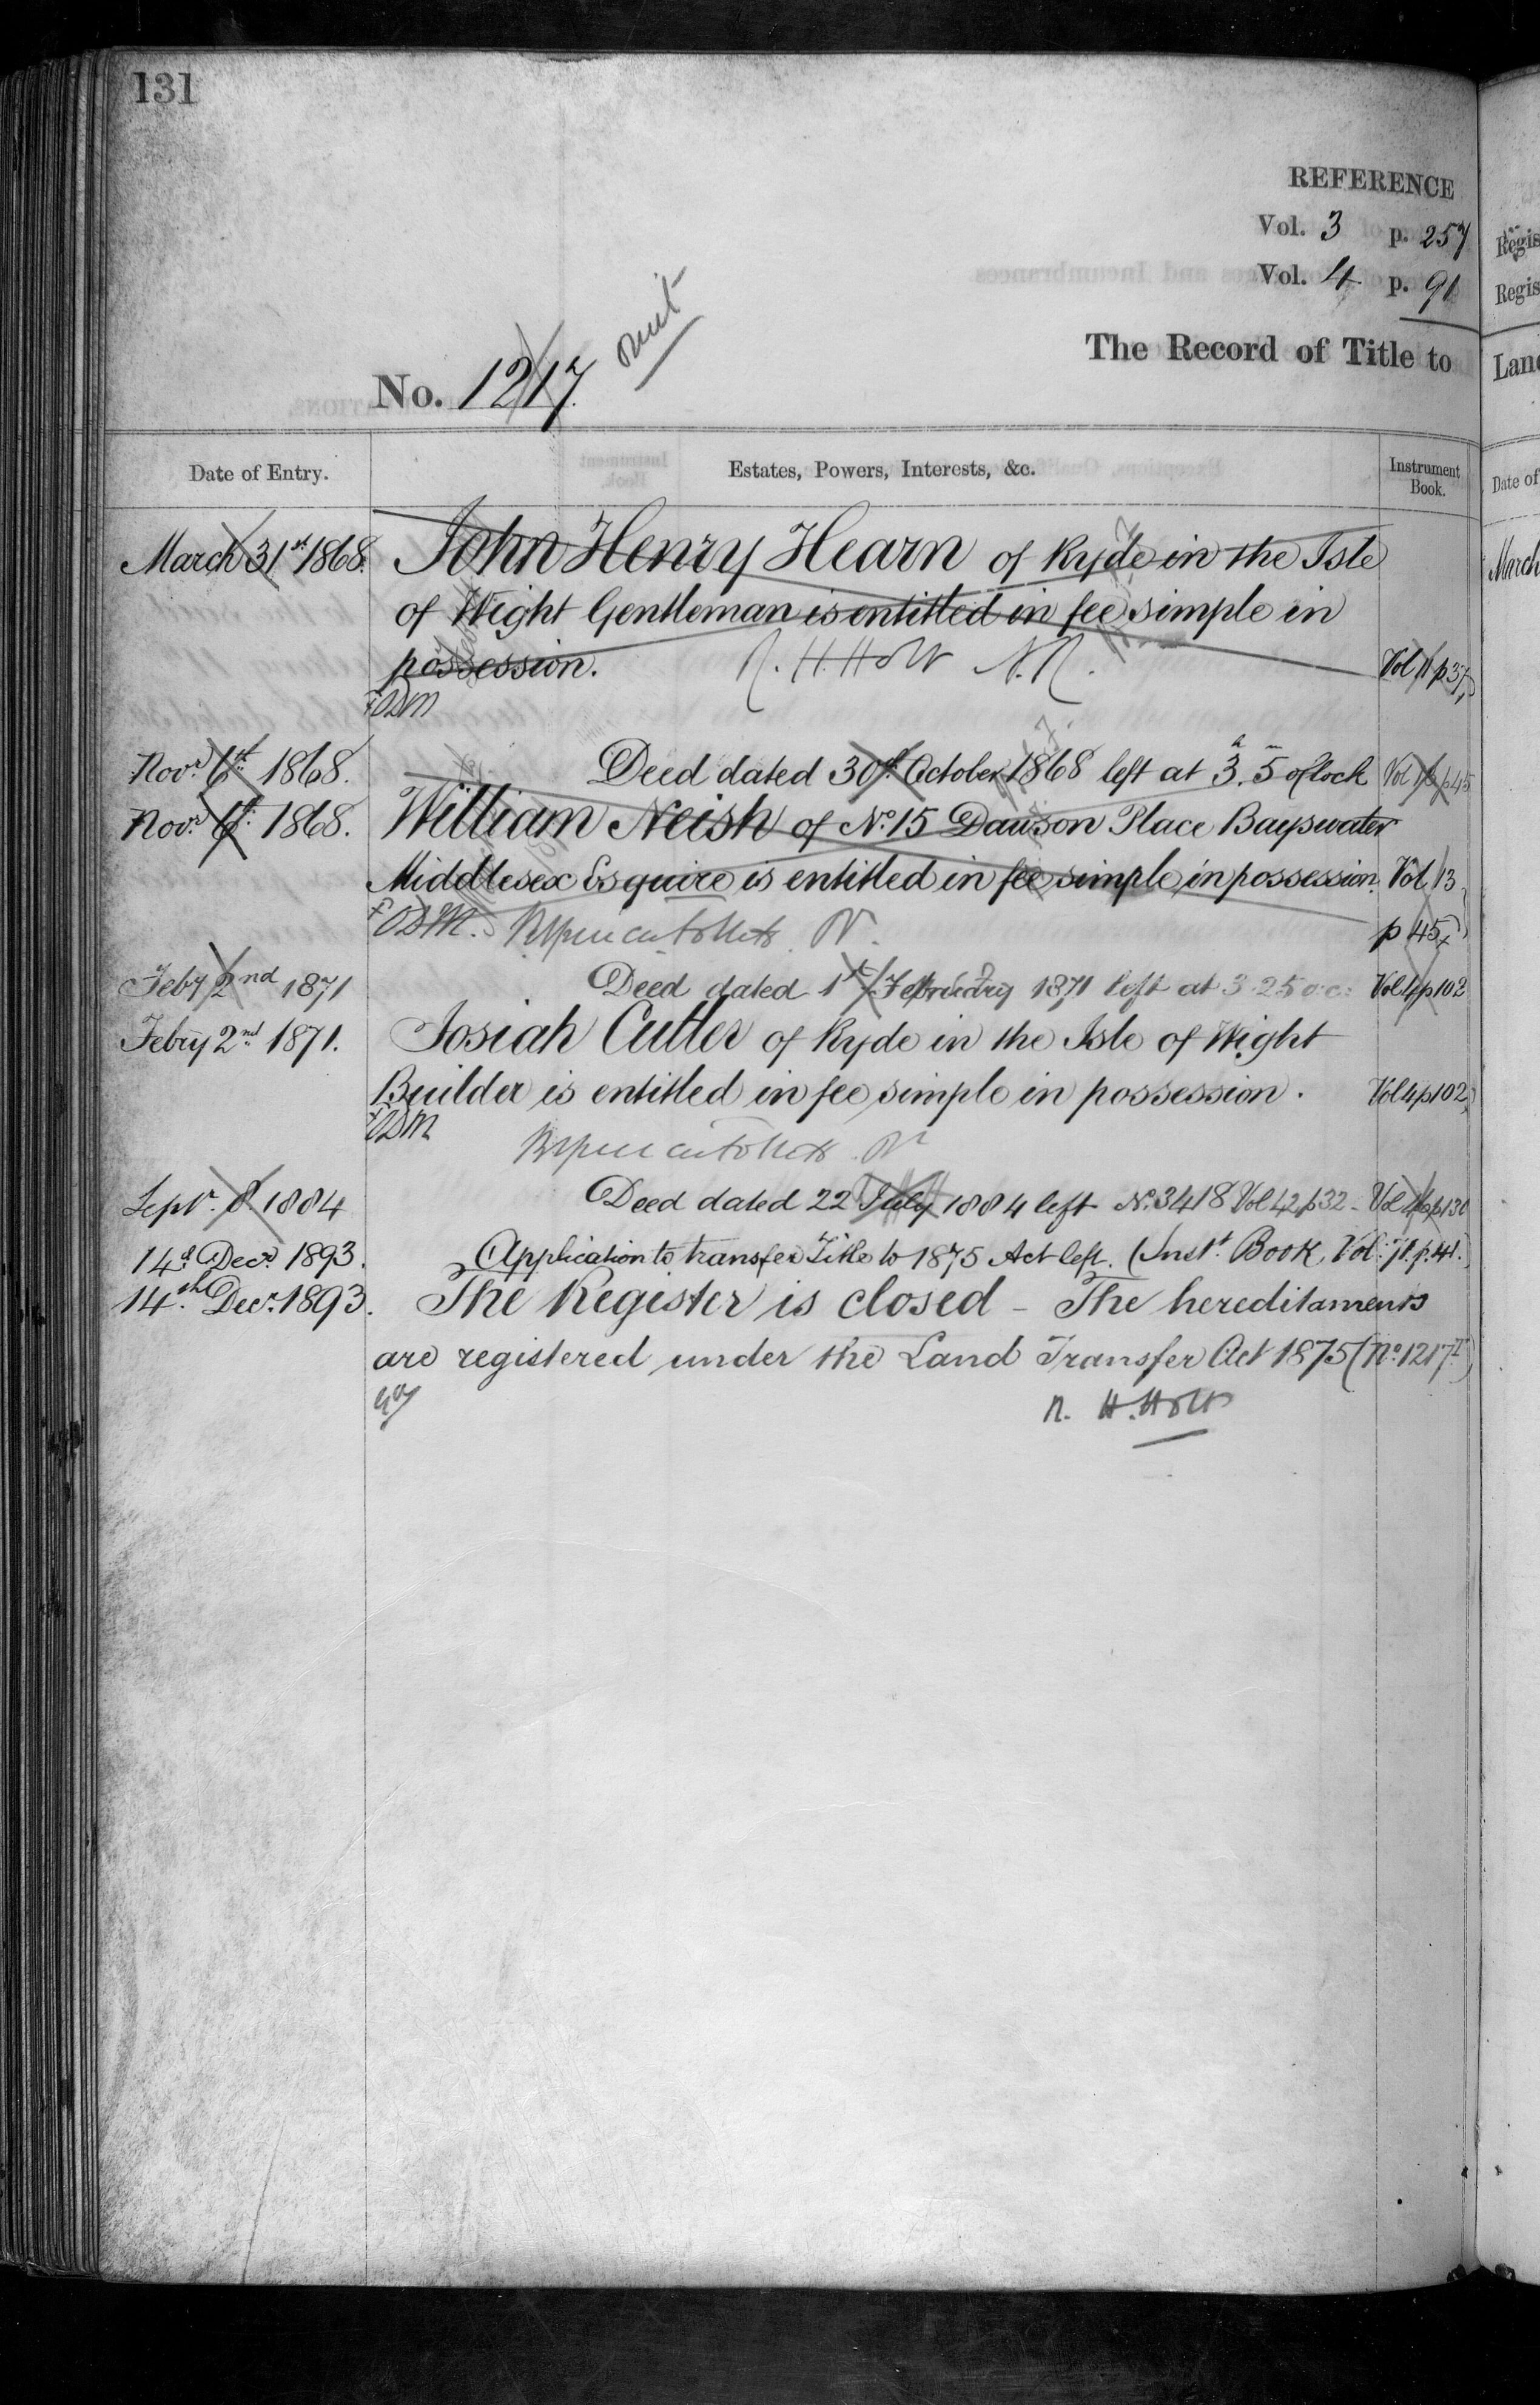 131
REFERENCE
Vol. 3 p. 257
Vol. 4 p. 91
The Record of Title to
No. 1217.
Date of Entry. Estates, Powers, Interests, &c. Instrument Book.
March 31st 1868. John Henry Hearn of Ryde in the Isle
of Wight Gentleman is entitled in fee simple in
possession. R. H. Holt Vol 11 p 37
Novr. 6th 1868. Deed dated 30th October 1868 left at 3h. 5m o'clock Vol 13 p 45
Novr. 6th 1868. William Neish of No. 15 Dawson Place Bayswater
Middlesex Esquire is entitled in fee simple in possession. Vol 13
p 45
Feby 2nd 1871 Deed dated 1st February 1871 left at 3.25 o.c. Vol 4 p 102
Febry 2nd 1871. Josiah Cutler of Ryde in the Isle of Wight
Builder is entitled in fee simple in possession. Vol 4 p 102
Septr. 8 1884 Deed dated 22 July 1884 left No. 3418 Vol 42 p 32
14th Decr. 1893. Application to transfer Title to 1875 Act left. (Inst. Book, Vol. 71. p. 41.)
14th Decr. 1893. The Register is closed – The hereditaments
are registered under the Land Transfer Act 1875 (No. 1217
R. H. Holt
Regis
Regis
Land
Date of
March